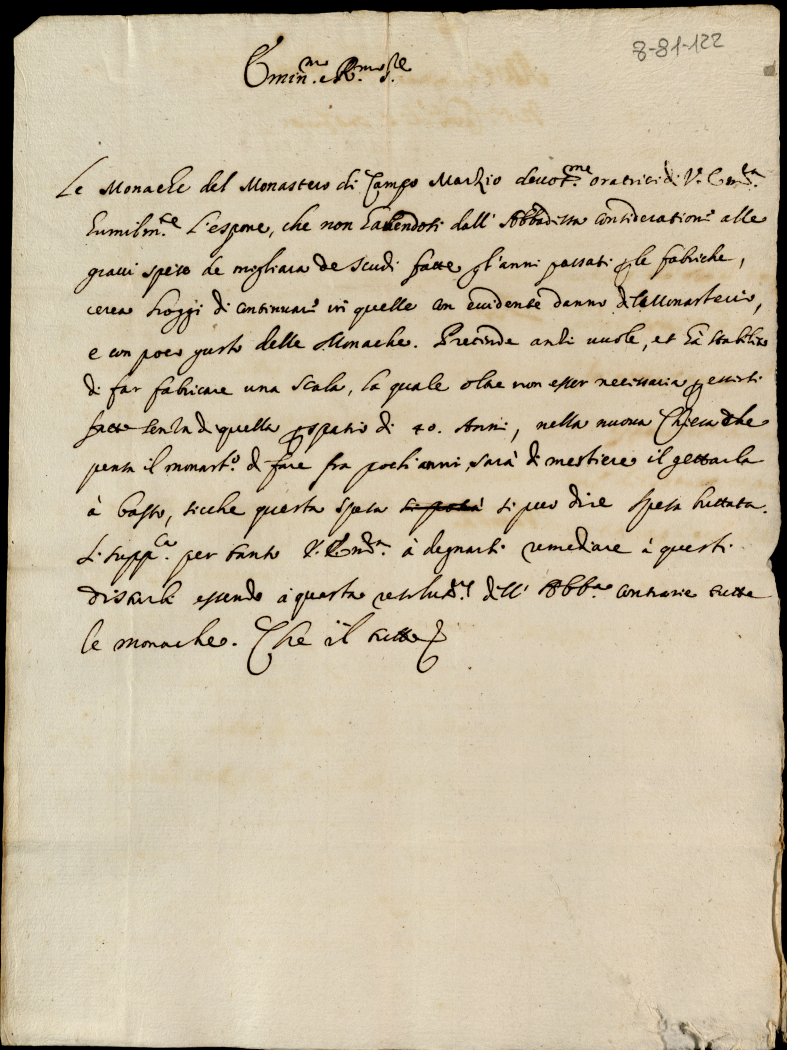 8-81-122
Emin.mo e R.mo S.re
Le Monache del Monastero di Campo Marzio devot.me oratrici di V. Em.za
humilm.te l'espone, che non havendosi dall' Abbadissa consideratione alle
gravi spese de migliara de scudi fatte gl'anni passati p le fabriche,
cerca hoggi di continuare in quelle con evidente danno del Monasterio,
e con poco gusto delle Monache. Pretende anzi vuole, et hà stabilito
di far fabricare una scala, la quale oltre non esser necessaria p essersi
fatte senza di quella p spatio di 40. Anni, nella nuova Chiesa che
pensa il monast.o di fare fra pochi anni, sarà di mestiere il gettarla
à basso, sicche questa spesa si potrà si puo dire spesa buttata.
Si supp.ca per tanto V. Em.za à degnarsi remediare à questi
disturbi essendo à questa resolut.ne dell' Abb.a contrarie tutte
le monache. Che il tutto